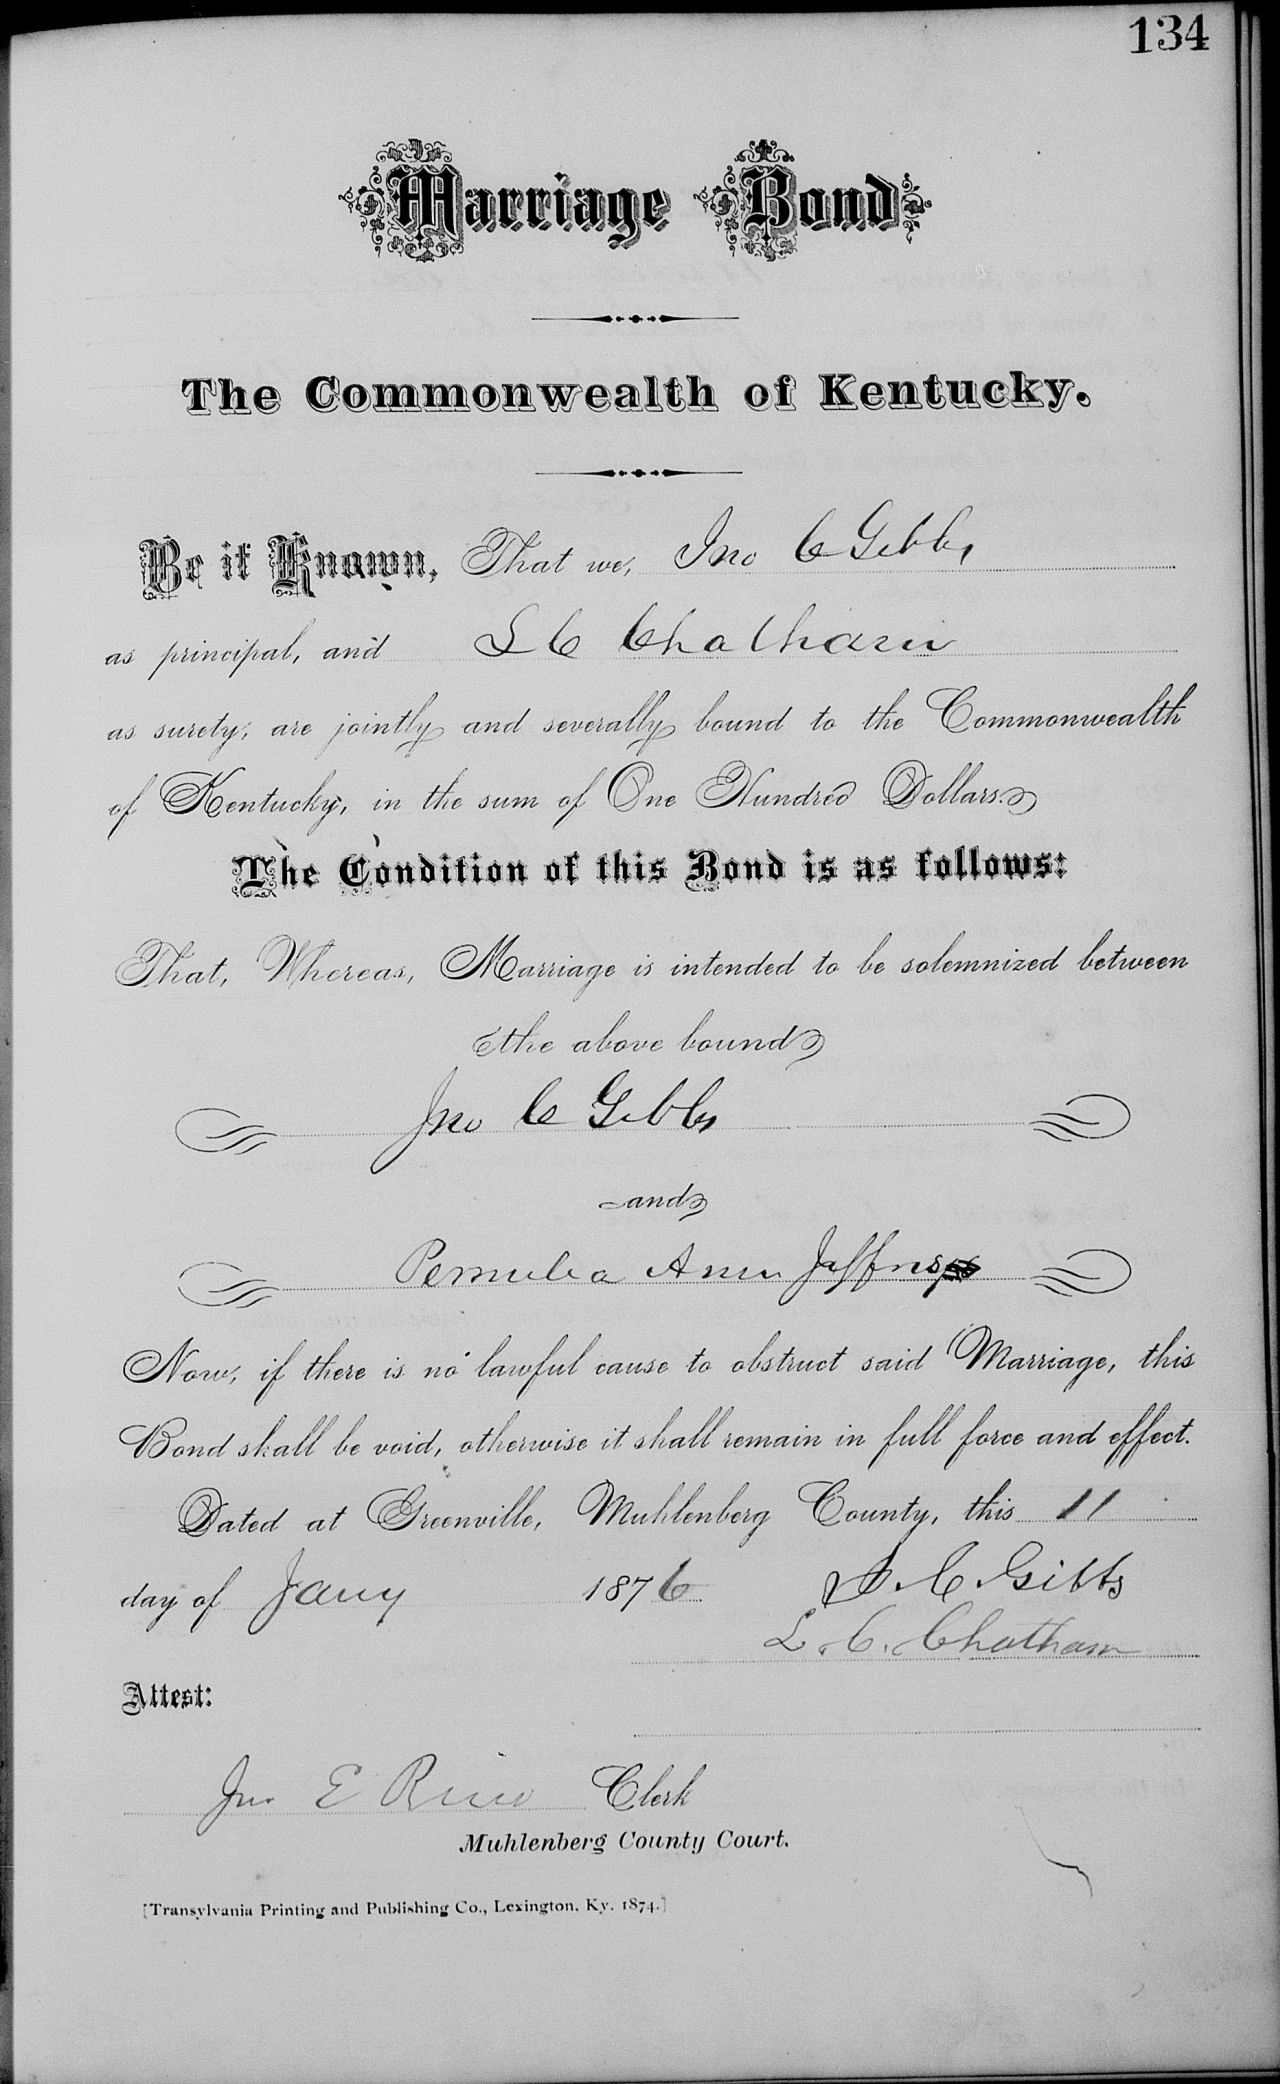 134
Marriage Bond
The Commonwealth of Kentucky.
Be it Known, That we, Jno C Gibbs
as principal, and L C Chatham
as surety, are jointly and severally bound to the Commonwealth
of Kentucky, in the sum of One Hundred Dollars.
The Condition of this Bond is as follows:
That, Whereas, Marriage is intended to be solemnized between
the above bound
Jno C Gibbs
and
Permelia Ann
Now, if there is no lawful cause to obstruct said Marriage, this
Bond shall be void, otherwise it shall remain in full force and effect.
Dated at Greenville, Muhlenberg County, this 11
day of Jany 1876 J. C. Gibbs
L. C. Chatham
Attest:
Jno E Reno Clerk
Muhlenberg County Court.
[Transylvania Printing and Publishing Co., Lexington, Ky. 1874.]